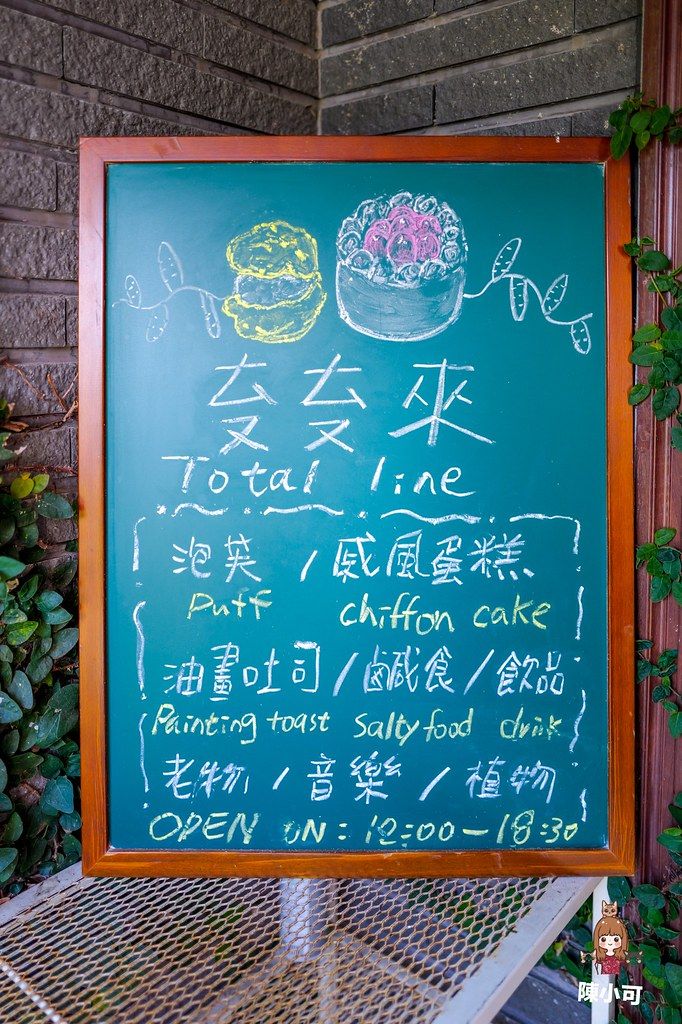 ㄊㄡㄊㄡ來
Total line
泡芙 / 戚風蛋糕
Puff chiffon cake
油畫吐司 / 鹹食 / 飲品
Painting toast Salty food drink
老物 / 音樂 / 植物
OPEN ON : 12:00 — 18:30
陳小可